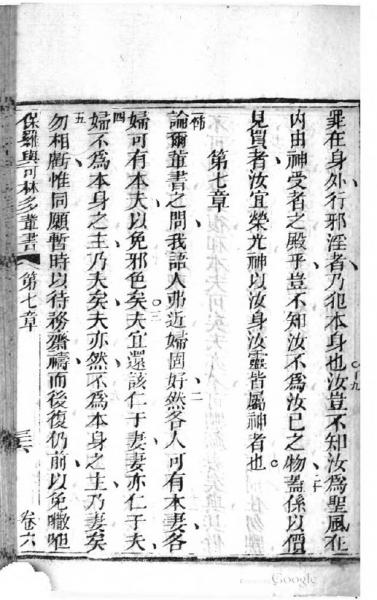 罪在身外行邪淫者乃犯本身也十九汝豈不知汝爲聖風在
內由神受者之殿乎豈不知汝不爲汝已之物二十蓋係以價
見買者汝宜榮光神以汝身汝靈皆屬神者也
第七章
論爾輩書之問我語人弗近婦固好二然各人可有本妻各
婦可有本夫以免邪色矣三夫宜還該仁于妻妻亦仁于夫
四婦不爲本身之主乃夫矣夫亦然不爲本身之主乃妻矣
五勿相虧惟同願暫時以待務齋禱而後復仍前以免
保羅與可林多輩書 第七章 卷六
Google